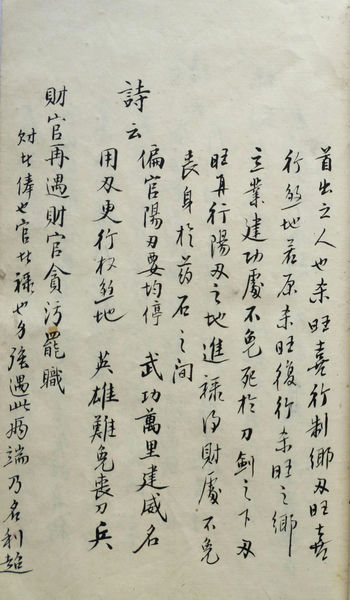 首出之人也杀旺喜行制鄉刃旺喜
行煞地若原杀旺復行杀旺之鄉
立業建功處不免死於刀劍之下刃
旺再行陽刃之地進祿得財處不免
喪身於药石之间
詩云
偏官陽刃要均停　武功萬里建威名
用刃更行杀煞地　英雄難免喪刀兵
財官再遇財官貪污罷職
財者俸也官者祿也身強遇此娇端乃名利超